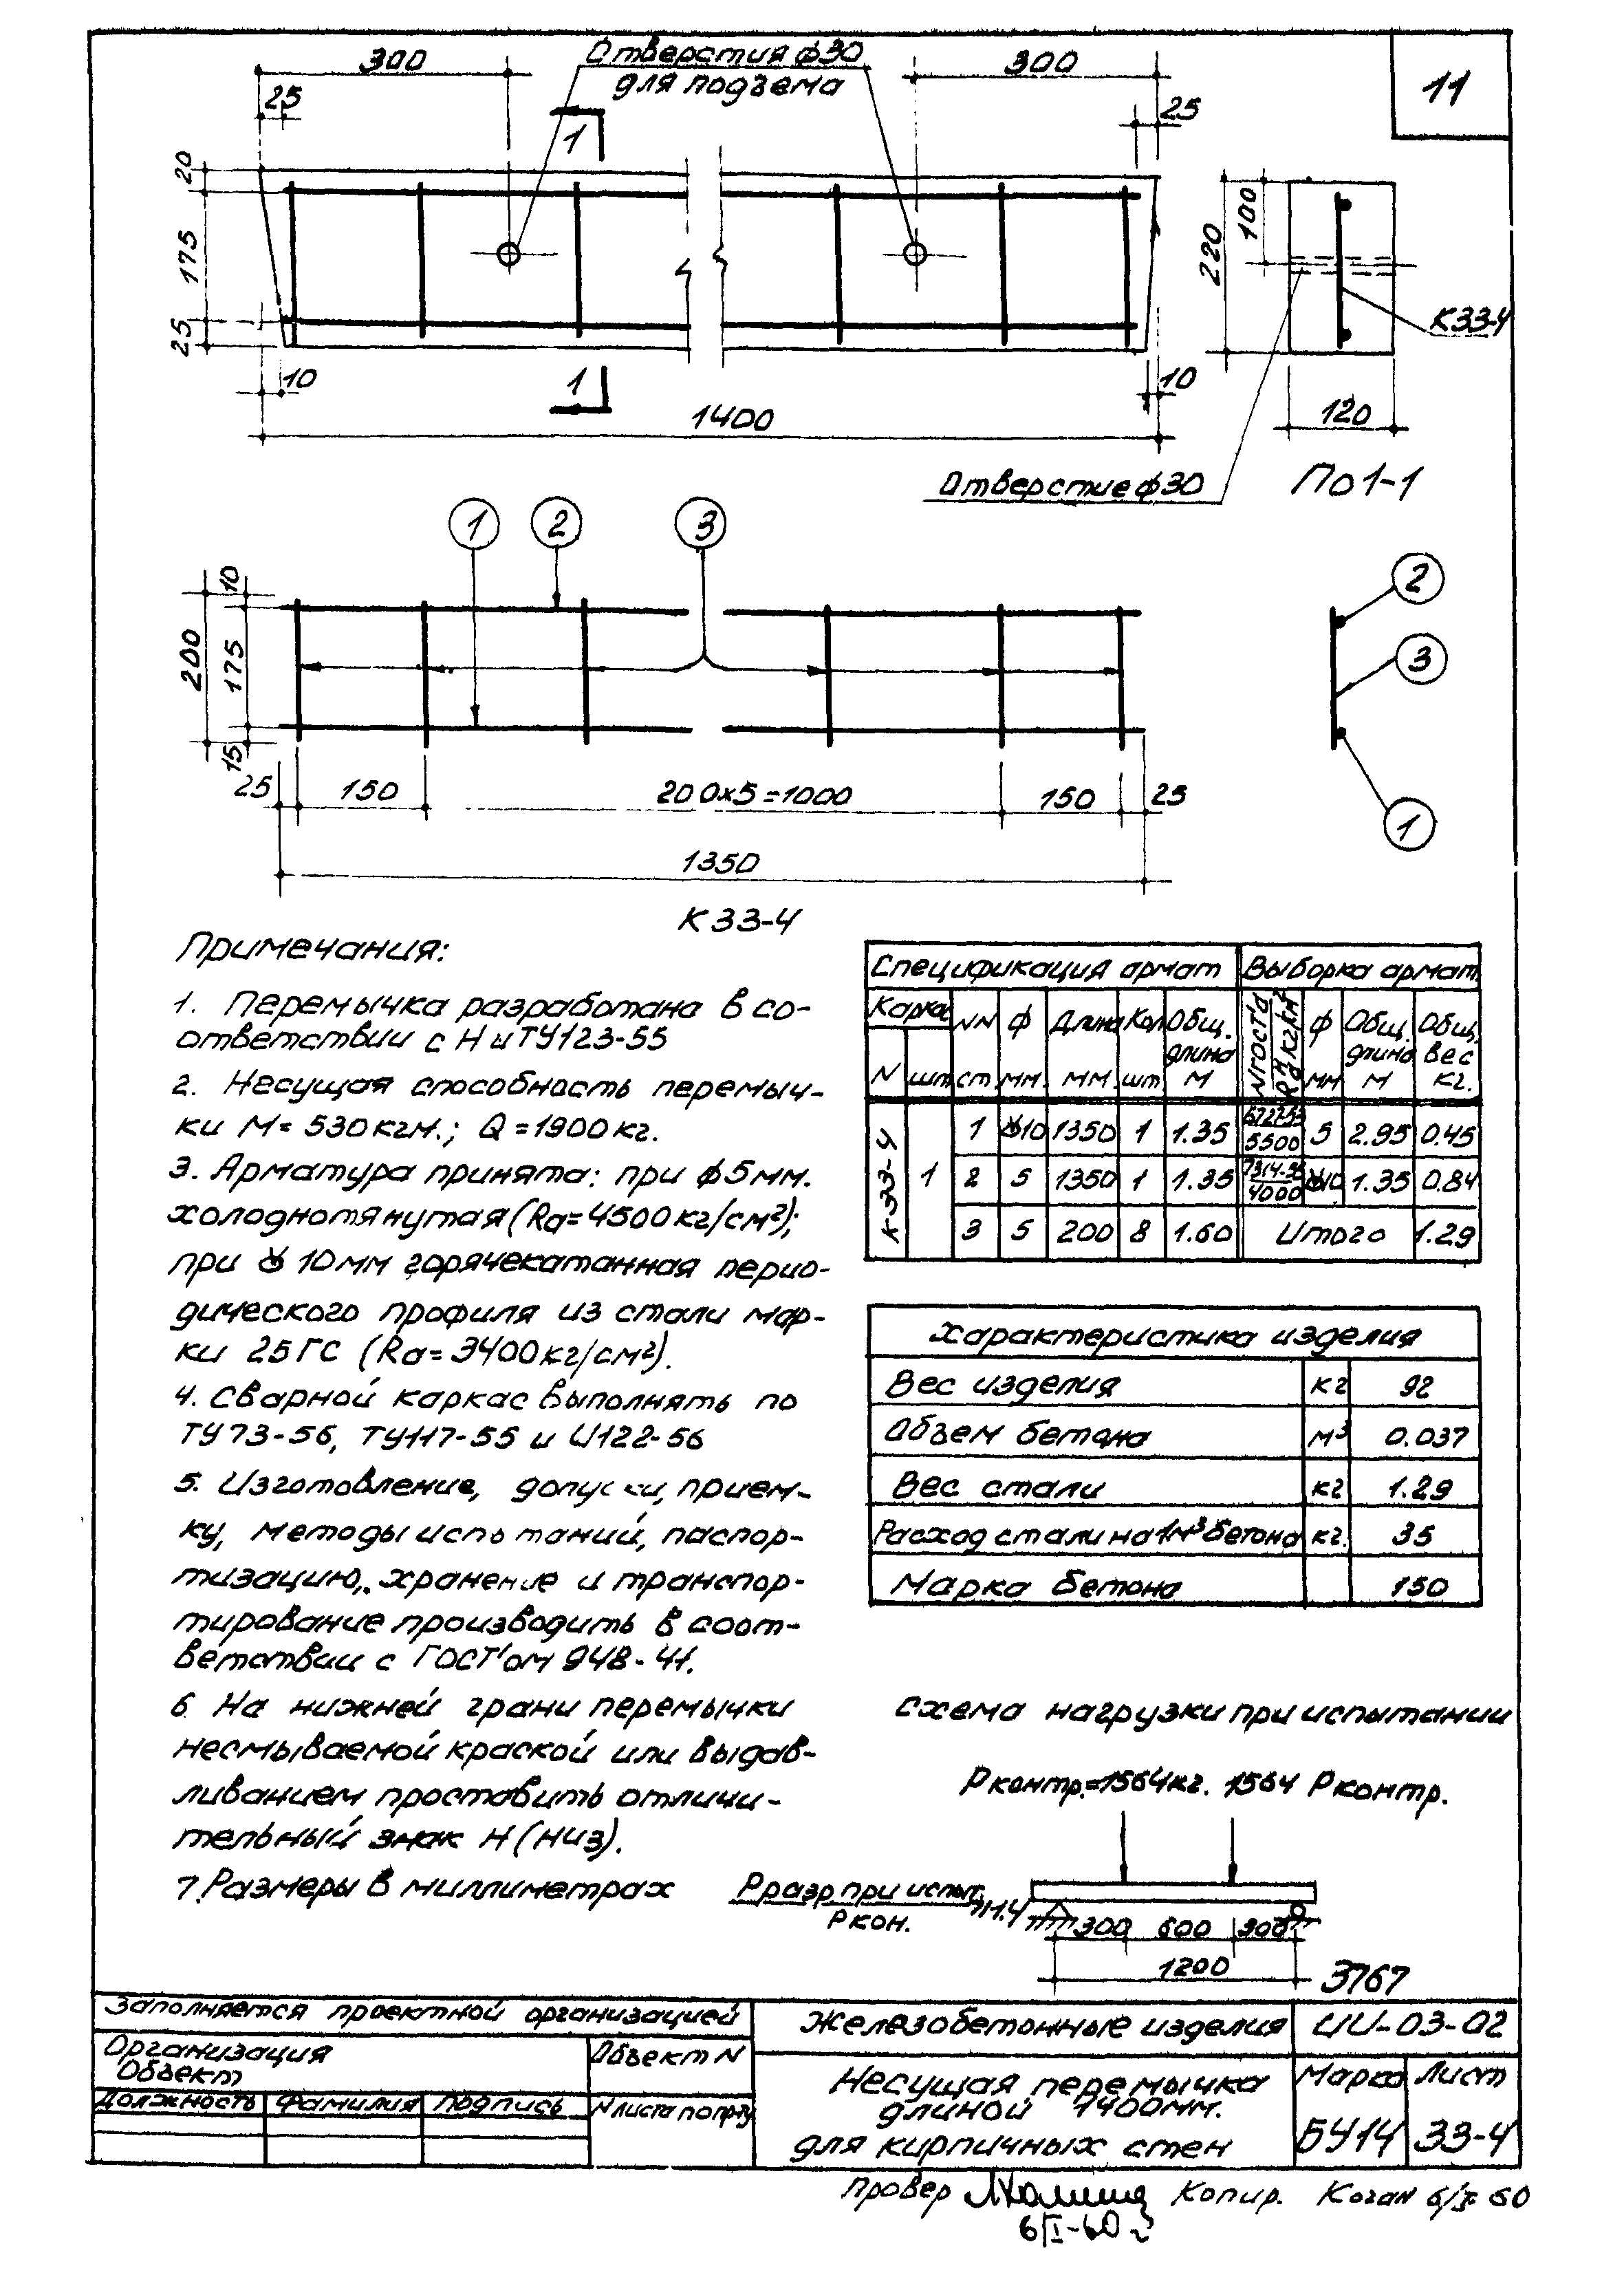 11
300
Отверстия ф30
для подъема
300
25
1
25
20
175
25
10
1
1400
10
220
100
К33-4
120
Отверстие ф30
По 1-1
1
2
3
10
200
175
15
25
150
200x5=1000
150
25
1350
К33-4
2
3
1
Примечания:
1. Перемычка разработана в со-
ответствии с Н и ТУ123-55
2. Несущая способность перемыч-
ки М= 530кгм.; Q=1900кг.
3. Арматура принята: при ф5мм.
холоднотянутая (Rа=4500кг/см²);
при 10мм горячекатанная перио-
дического профиля из стали мар-
ки 25ГС (Rа=3400кг/см²).
4. Сварной каркас выполнять по
ТУ73-56, ТУ117-55 и И122-56
5. Изготовление, допуски, прием-
ку, методы испытаний, паспор-
тизацию, хранение и транспор-
тирование производить в соот-
ветствии с ГОСТ'ом 948-41.
6 На нижней грани перемычки
несмываемой краской или выдав-
ливанием проставить отличи-
тельный знак Н (низ).
7. Размеры в миллиметрах
Спецификация армат Выборка армат.
Каркас NN ф Длина Кол Общ. длина NГОСТ'а Rан кг/см² ф Общ. длина Общ. вес
N шт ст. мм. мм. шт М мм М кг.
К33-4 1
1 10 1350 1 1.35 6727-53 5500 5 2.95 0.45
2 5 1350 1 1.35 7314-56 4000 10 1.35 0.84
3 5 200 8 1.60 Итого 1.29
Характеристика изделия
Вес изделия кг 92
Объем бетона м³ 0.037
Вес стали кг 1.29
Расход стали на 1м³ бетона кг. 35
Марка бетона 150
Схема нагрузки при испытании
Рконтр.=1564кг. 1564 Рконтр.
Рразр. при испыт.
Ркон.
300 600 300
1200
3767
Заполняется проектной организацией
Организация
Объект
Объект N
Должность Фамилия Подпись N листа по пр-ту
Железобетонные изделия
ИИ-03-02
Несущая перемычка
длиной 1400мм.
для кирпичных стен
Марка Лист
БУ14 33-4
Провер Копир. Коган 6/I 60
6/I-60 г